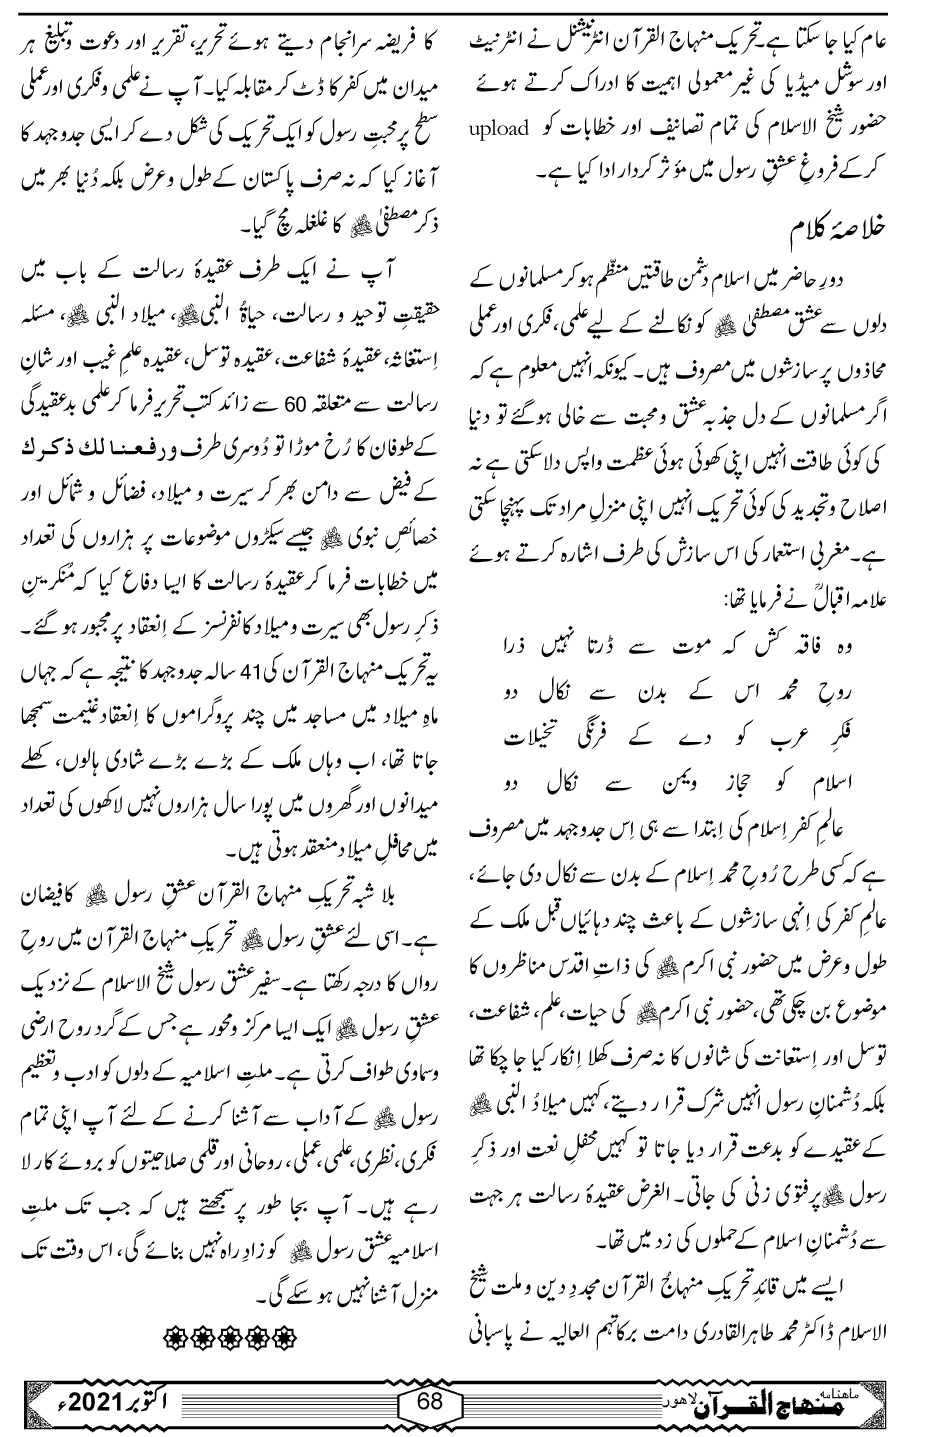 عام کیا جا سکتا ہے۔ تحریک منہاج القرآن انٹرنیشنل نے انٹرنیٹ
اور سوشل میڈیا کی غیر معمولی اہمیت کا ادراک کرتے ہوئے
حضور شیخ الاسلام کی تمام تصانیف اور خطابات کو upload
کرکے فروغِ عشقِ رسول میں مؤثر کردار ادا کیا ہے۔
خلاصۂ کلام
دورِ حاضر میں اسلام دشمن طاقتیں منظّم ہو کر مسلمانوں کے
دلوں سے عشق مصطفیٰ ﷺ کو نکالنے کے لیے علمی، فکری اور عملی
محاذوں پر سازشوں میں مصروف ہیں۔ کیونکہ انہیں معلوم ہے کہ
اگر مسلمانوں کے دل جذبہ عشق ومحبت سے خالی ہوگئے تو دنیا
کی کوئی طاقت انہیں اپنی کھوئی ہوئی عظمت واپس دلا سکتی ہے نہ
اصلاح وتجدید کی کوئی تحریک انہیں اپنی منزلِ مراد تک پہنچا سکتی
ہے۔ مغربی استعمار کی اس سازش کی طرف اشارہ کرتے ہوئے
علامہ اقبالؒ نے فرمایا تھا:
وہ فاقہ کش کہ موت سے ڈرتا نہیں ذرا
روحِ محمد اس کے بدن سے نکال دو
فکرِ عرب کو دے کے فرنگی تخیلات
اسلام کو حجاز ویمن سے نکال دو
عالمِ کفر اِسلام کی اِبتدا سے ہی اِس جدوجہد میں مصروف
ہے کہ کسی طرح رُوحِ محمد اِسلام کے بدن سے نکال دی جائے،
عالمِ کفر کی اِنہی سازشوں کے باعث چند دہائیاں قبل ملک کے
طول وعرض میں حضور نبی اکرم ﷺ کی ذاتِ اقدس مناظروں کا
موضوع بن چکی تھی، حضور نبی اکرم ﷺ کی حیات، علم، شفاعت،
توسل اور اِستعانت کی شانوں کا نہ صرف کھلا اِنکار کیا جا چکا تھا
بلکہ دُشمنانِ رسول انہیں شرک قرار دیتے، کہیں میلادُ النبی ﷺ
کے عقیدے کو بدعت قرار دیا جاتا تو کہیں محفلِ نعت اور ذکرِ
رسول ﷺ پر فتویٰ زنی کی جاتی۔ الغرض عقیدۂ رسالت ہر جہت
سے دُشمنانِ اسلام کے حملوں کی زد میں تھا۔
ایسے میں قائدِ تحریکِ منہاجُ القرآن مجددِ دین وملت شیخ
الاسلام ڈاکٹر محمد طاہرالقادری دامت برکاتہم العالیہ نے پاسبانی
کا فریضہ سرانجام دیتے ہوئے تحریر، تقریر اور دعوت وتبلیغ ہر
میدان میں کفر کا ڈٹ کر مقابلہ کیا۔ آپ نے علمی وفکری اور عملی
سطح پر محبتِ رسول کو ایک تحریک کی شکل دے کر ایسی جدوجہد کا
آغاز کیا کہ نہ صرف پاکستان کے طول وعرض بلکہ دُنیا بھر میں
ذکر مصطفیٰ ﷺ کا غلغلہ مچ گیا۔
آپ نے ایک طرف عقیدۂ رسالت کے باب میں
حقیقتِ توحید و رسالت، حیاۃُ النبی ﷺ، میلاد النبی ﷺ، مسئلہ
اِستغاثہ، عقیدۂ شفاعت، عقیدہ توسل، عقیدہ علمِ غیب اور شانِ
رسالت سے متعلقہ 60 سے زائد کتب تحریر فرما کر علمی بدعقیدگی
کے طوفان کا رُخ موڑا تو دُوسری طرف ورفعنا لك ذكرك
کے فیض سے دامن بھر کر سیرت و میلاد، فضائل و شمائل اور
خصائصِ نبوی ﷺ جیسے سیکڑوں موضوعات پر ہزاروں کی تعداد
میں خطابات فرما کر عقیدۂ رسالت کا ایسا دفاع کیا کہ مُنکرینِ
ذکرِ رسول بھی سیرت ومیلاد کانفرنسز کے اِنعقاد پر مجبور ہوگئے۔
یہ تحریک منہاج القرآن کی 41 سالہ جدوجہد کا نتیجہ ہے کہ جہاں
ماہِ میلاد میں مساجد میں چند پروگراموں کا اِنعقاد غنیمت سمجھا
جاتا تھا، اب وہاں ملک کے بڑے بڑے شادی ہالوں، کھلے
میدانوں اور گھروں میں پورا سال ہزاروں نہیں لاکھوں کی تعداد
میں محافلِ میلاد منعقد ہوتی ہیں۔
بلا شبہ تحریکِ منہاج القرآن عشقِ رسول ﷺ کا فیضان
ہے۔ اسی لئے عشقِ رسول ﷺ تحریکِ منہاج القرآن میں روحِ
رواں کا درجہ رکھتا ہے۔ سفیرِ عشق رسول شیخ الاسلام کے نزدیک
عشقِ رسول ﷺ ایک ایسا مرکز ومحور ہے جس کے گرد روح ارضی
وسماوی طواف کرتی ہے۔ ملتِ اسلامیہ کے دلوں کو ادب وتعظیمِ
رسول ﷺ کے آداب سے آشنا کرنے کے لئے آپ اپنی تمام
فکری، نظری، علمی، عملی، روحانی اور قلمی صلاحیتوں کو بروئے کار لا
رہے ہیں۔ آپ بجا طور پر سمجھتے ہیں کہ جب تک ملتِ
اسلامیہ عشق رسول ﷺ کو زادِ راہ نہیں بنائے گی، اس وقت تک
منزل آشنا نہیں ہو سکے گی۔
ماهنامه منهاج القرآن لاهور
68
اکتوبر 2021ء